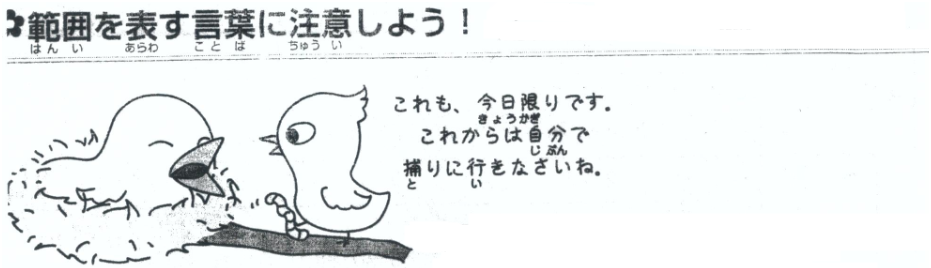 範囲を表す言葉に注意しよう！
はんい あらわ ことば ちゅうい
これも、今日限りです。
きょうかぎ
これからは自分で
じぶん
捕りに行きなさいね。
と い